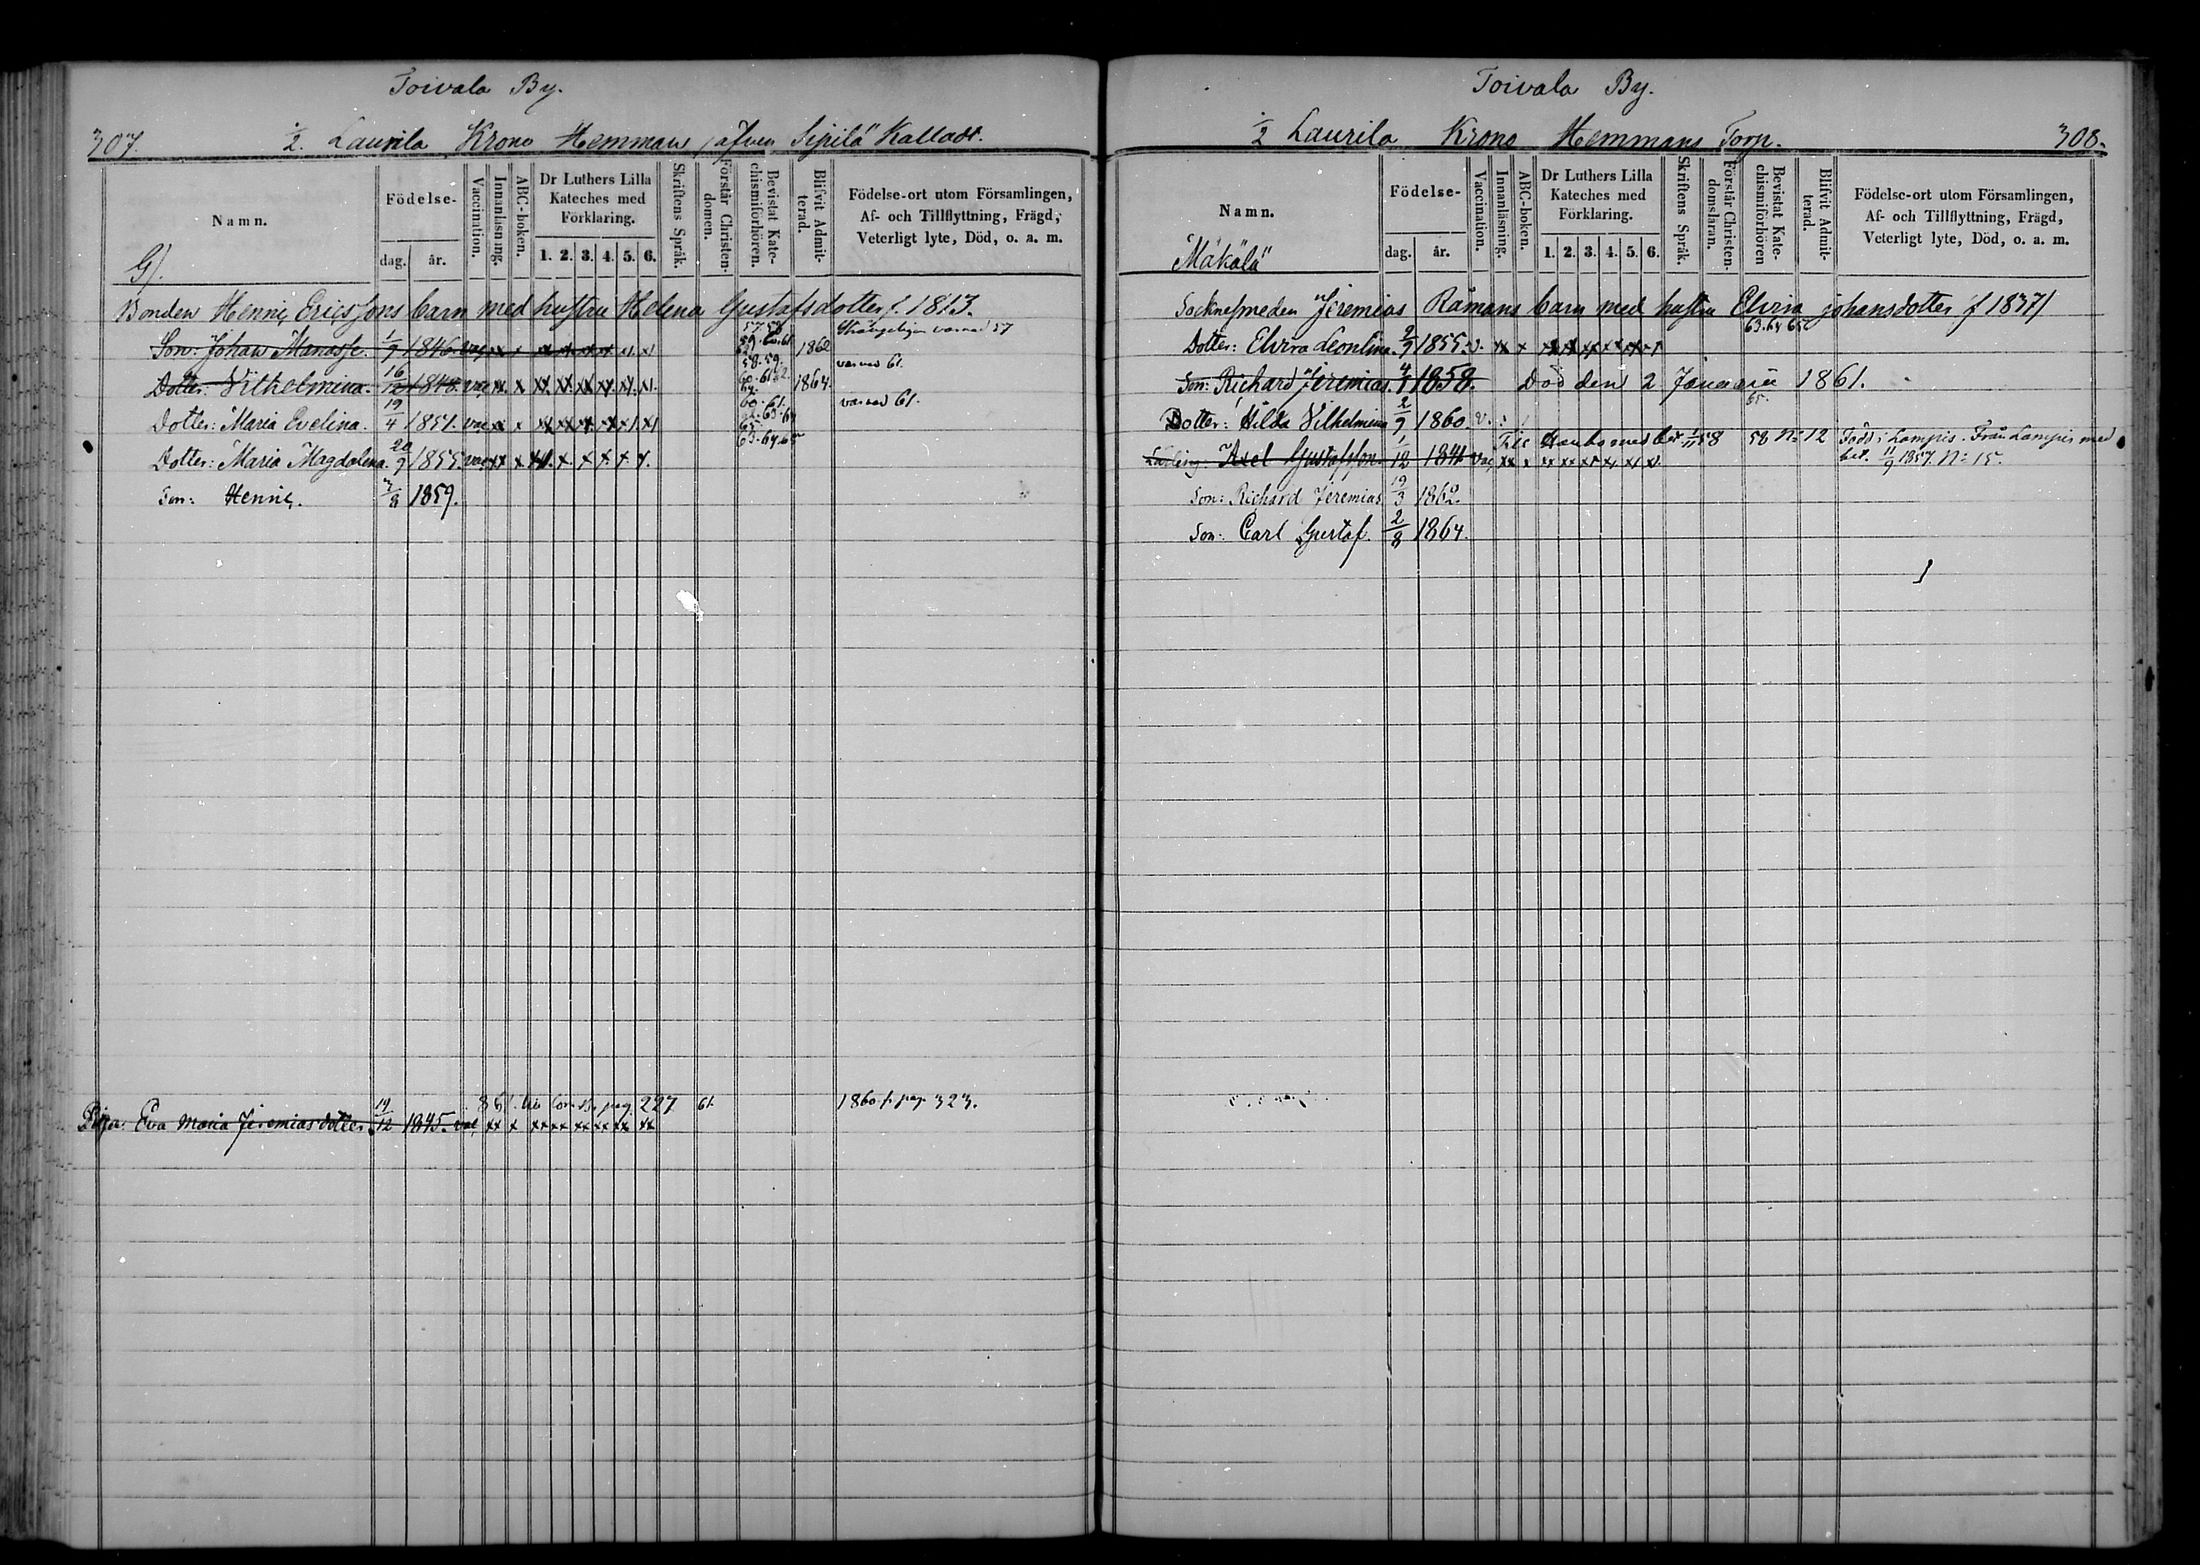 Toivala By.
307. 1/2 Laurila Krono Hemman, äfven Sipilä Kalladt.
Namn.
Födelse-
dag. år.
Vaccination.
Innanläsning.
ABC-boken.
Dr Luthers Lilla Kateches med Förklaring.
1. 2. 3. 4. 5. 6.
Skriftens Språk.
Förstår Christendomen.
Bevistat Katechismiförhören.
Blifvit Admitterad.
Födelse-ort utom Församlingen, Af- och Tillflyttning, Frägd, Veterligt lyte, Död, o. a. m.
G).
Bonden Henric Ericssons barn med hustru Helena Gustafsdotter f. 1813.
57. 58. 59. 60. 61
Son: Johan Manasse. 1/9 1846. vac xx x 1862 varnad 57
58. 59. 60. 61. 62.
Dotter: Vilhelmina. 16/12 1848. vac xx x 1864. varnad 61.
60. 61. 62. 63. 64 65
Dotter: Maria Evelina. 19/4 1851. vac xx x varnad 61.
63. 64. 65
Dotter: Maria Magdalena 20/9 1855. vac xx x
Son: Henric. 7/8 1859.
861 pag. 227 61. 1860 fr. pag. 323.
Piga: Eva Maria Jeremiasdotter. 19/12 1845. vac xx x xx xx xx xx xx xx
Toivala By.
1/2 Laurila Krono Hemmans Torp. 308.
Namn.
Födelse-
dag. år.
Vaccination.
Innanläsning.
ABC-boken.
Dr Luthers Lilla Kateches med Förklaring.
1. 2. 3. 4. 5. 6.
Skriftens Språk.
Förstår Christendomslaran.
Bevistat Katechismiförhören
Blifvit Admitterad.
Födelse-ort utom Församlingen, Af- och Tillflyttning, Frägd, Veterligt lyte, Död, o. a. m.
"Mäkälä"
Socknesmeden Jeremias Råmans barn med hustru Elvira Johansdotter f 1837/
63. 64 65
Dotter: Elvira Leontina. 2/9 1855. v. xx x
Son: Richard Jeremias. 4/1 1858. Död den 2 Januarii 1861.
65.
Dotter: Hilda Vilhelmina 2/9 1860. v.
Fic med bet 1/11 58 58 No 12 Född i Lampis. Från Lampis med
Lärling Axel Gustafsson. 1/12 1841 vac xx x bet. 11/9 1857. No 15.
Son: Richard Jeremias 19/3 1862.
Son: Carl Gustaf. 2/8 1864.